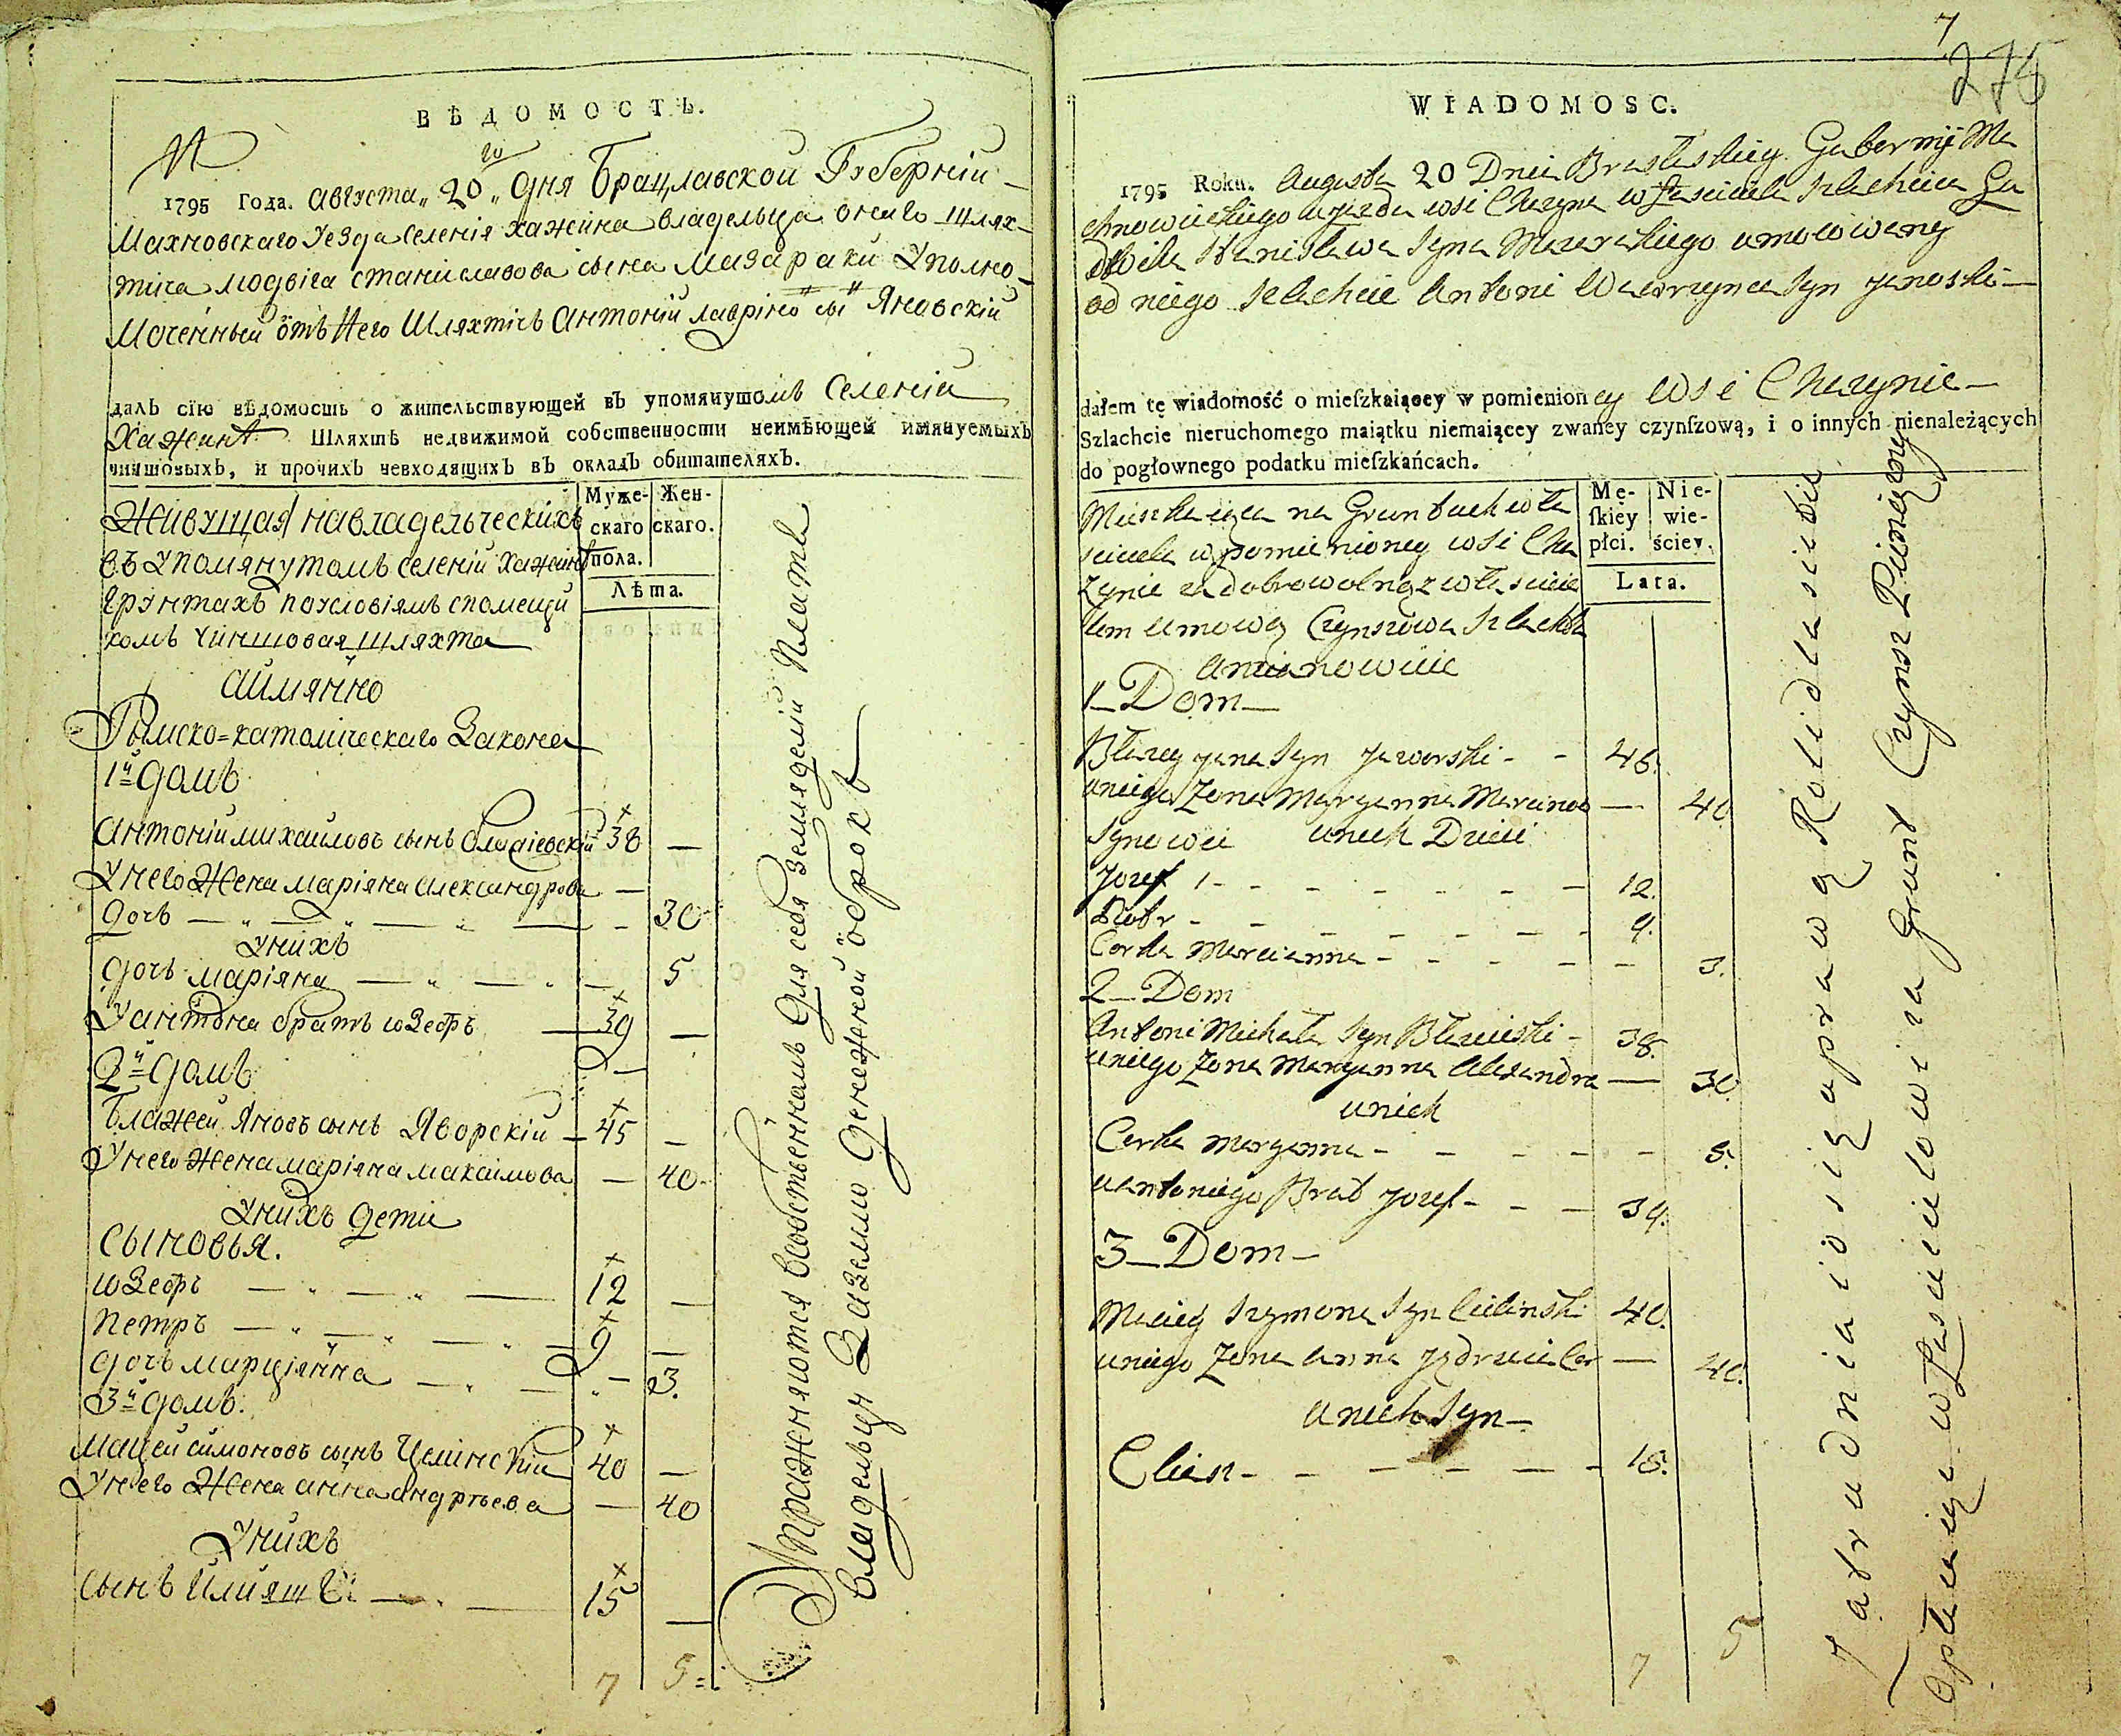 ВѢДОМОСТЬ.
1795 Года. Августа „20„ го дня Брацлавской Губерніи
Махновскаго уезда Селенія Хажина владельца онаго шлях-
тича людвіга станіславова сына Мазараки Уполно-
моченный отъ Него Шляхтичъ Антоній лаврінов сы Яновскій
далъ сію вѣдомость о жительствующей въ упомянутомъ Селеніи
Хажинѣ Шляхтѣ недвижимой собственности неимѣющей имянуемыхъ
чиншовыхъ, и прочихъ невходящихъ въ окладъ обитателяхъ.
Муже- Жен-
скаго скаго.
пола.
Лѣта.
Живущая навладельческихъ
въ упомянутомъ селеніи Хажинѣ
грунтахъ поусловіямъ спомещи
комъ чиншовая шляхта
аймянно
Рымско=католіческаго Закона
1й домъ
Антоній михаиловъ сынъ 38 —
Унего Жена маріяна александрова —
дочь — — — 30
унихъ
дочь маріяна — — — 5
У антона братъ юзефъ — 39 —
2й домъ
Блажей Яновъ сынъ Яворскій — 45 —
Унего Жена маріяна — 40
унихъ дети
Сыновья.
юзефъ — — — 12 —
Петръ — — — 9 —
дочь марціянна — — — 3.
3й домъ.
Мацей симоновъ сынъ Целінскій 40 —
Унего Жена анна андрѣева — 40
Унихъ
сынъ Илияшъ — — 15 —
7 5=
Упражняются Всобственномъ Для себя Земледелии Платя
Владельцу Заземлю Денежной оброкъ
7
276
WIADOMOSC.
1795 Roku. Augusta 20 Dnia Gubernij Ma
chnowieckiego ujezdu wsi Chazyna własciciela szlachcica Lu
dwika Stanisława syna Mazarakiego umocowany
od niego szlachcic Antoni Wawrzynca syn Janoski —
dałem tę wiadomość o mieſzkaiącey w pomienioney wsi Chazynie —
Szlachcie nieruchomego maiątku niemaiącey zwaney czynſzową, i o innych nienależących
do pogłownego podatku mieſzkańcach.
Mę- Nie-
ſkiey wie-
płci. ściey.
Lata.
Mieszkaiąca na Gruntach wła
sciciela w pomienioney wsi Cha
zynie za dobrowolną z własicie
lem umową Czynszowa szlachta
amianowicie
1 — Dom —
Błazey Jana syn Jaworski - - 46.
uniego Zona Maryanna — 40
Synowie unich Dzieci
Jozef - - - - - - 12.
Piotr - - - - - - 9.
Corka Marcianna - - - - - 3.
2 — Dom
Antoni Michała syn - 38.
uniego Zona Maryanna Alexandra — 30
unich
Corka Maryanna - - - - - 5.
uantoniego Brat Jozef - - - 39.
3 — Dom —
Maciey Szymona syn Cielinski 40.
uniego Zona Anna Jędrzeia Cor — 40.
unich syn —
Eliasz - - - - - - 15.
7 5
Zatrudniaią się uprawą Roli dla siebie
Opłacaiąc własicielowi za Grunt Czynsz Pieniężny